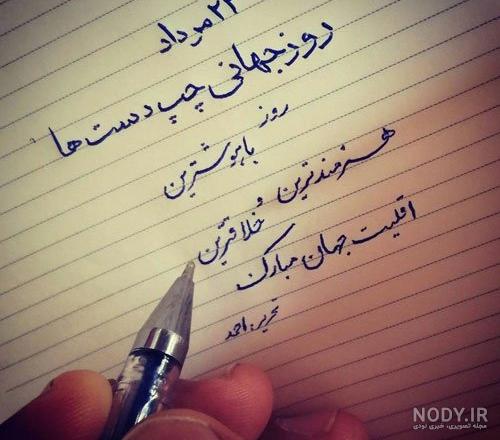 ۲۲ مرداد
روز جهانی چپ دست ها
روز باهوشترین
هنرمندترین و خلاقترین
اقلیت جهان مبارک
تحریر: احمد
NODY.IR
مجله تصویری، خبری نودی